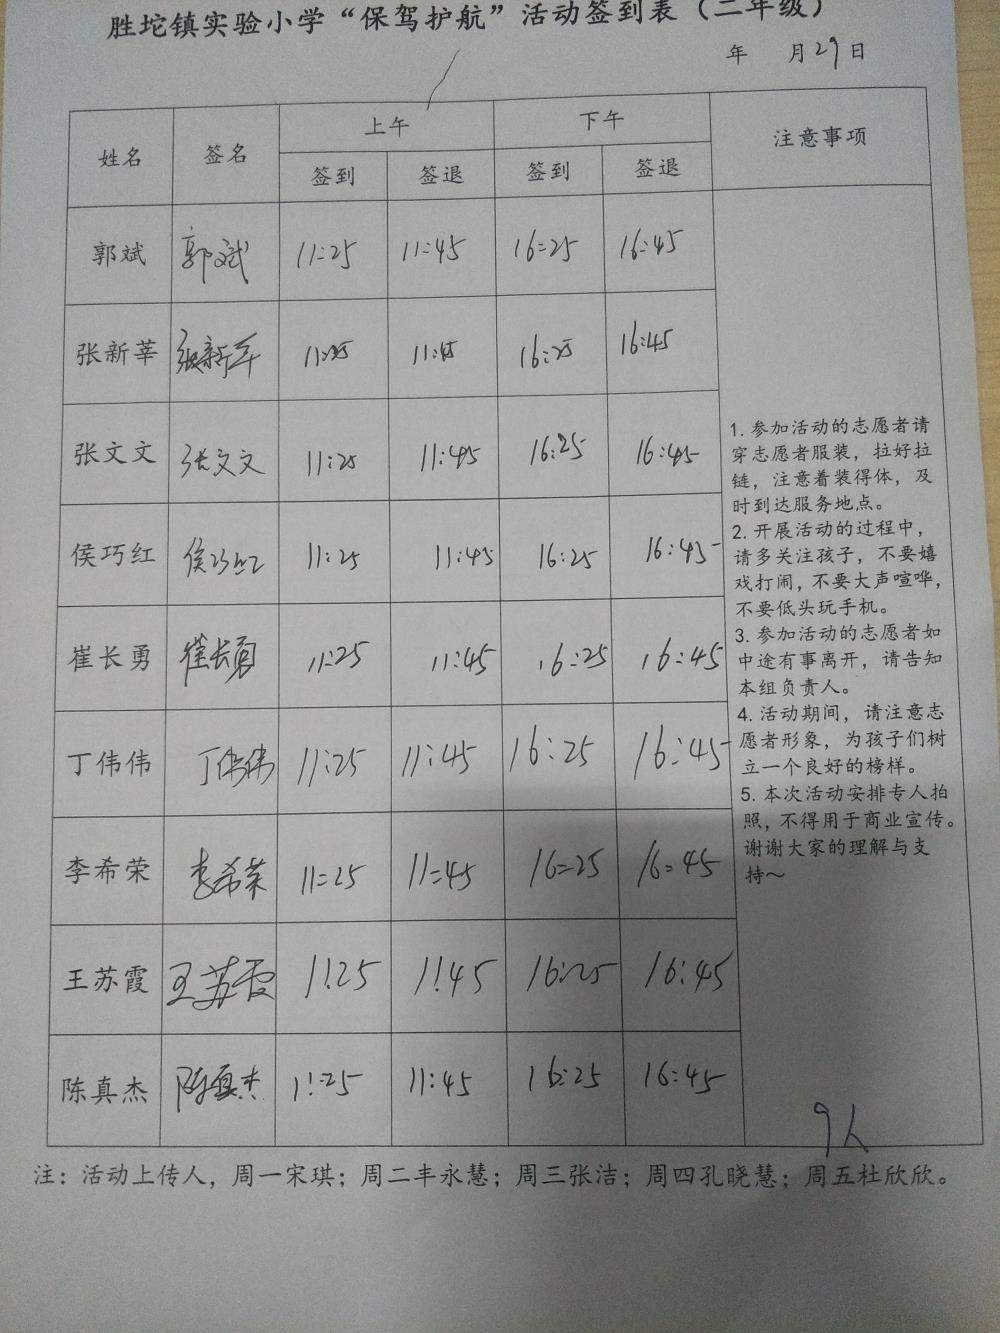 胜坨镇实验小学“保驾护航”活动签到表（二年级）
年 月29日
姓名 签名 上午 下午 注意事项
签到 签退 签到 签退
郭斌 郭斌 11:25 11:45 16:25 16:45
张新莘 张新莘 11:25 11:45 16:25 16:45
张文文 张文文 11:25 11:45 16:25 16:45
侯巧红 侯巧红 11:25 11:45 16:25 16:45
崔长勇 崔长勇 11:25 11:45 16:25 16:45
丁伟伟 丁伟伟 11:25 11:45 16:25 16:45
李希荣 李希荣 11:25 11:45 16:25 16:45
王苏霞 王苏霞 11:25 11:45 16:25 16:45
陈真杰 陈真杰 11:25 11:45 16:25 16:45
1. 参加活动的志愿者请
穿志愿者服装，拉好拉
链，注意着装得体，及
时到达服务地点。
2. 开展活动的过程中，
请多关注孩子，不要嬉
戏打闹，不要大声喧哗，
不要低头玩手机。
3. 参加活动的志愿者如
中途有事离开，请告知
本组负责人。
4. 活动期间，请注意志
愿者形象，为孩子们树
立一个良好的榜样。
5. 本次活动安排专人拍
照，不得用于商业宣传。
谢谢大家的理解与支
持～
9人
注：活动上传人，周一宋琪；周二丰永慧；周三张洁；周四孔晓慧；周五杜欣欣。